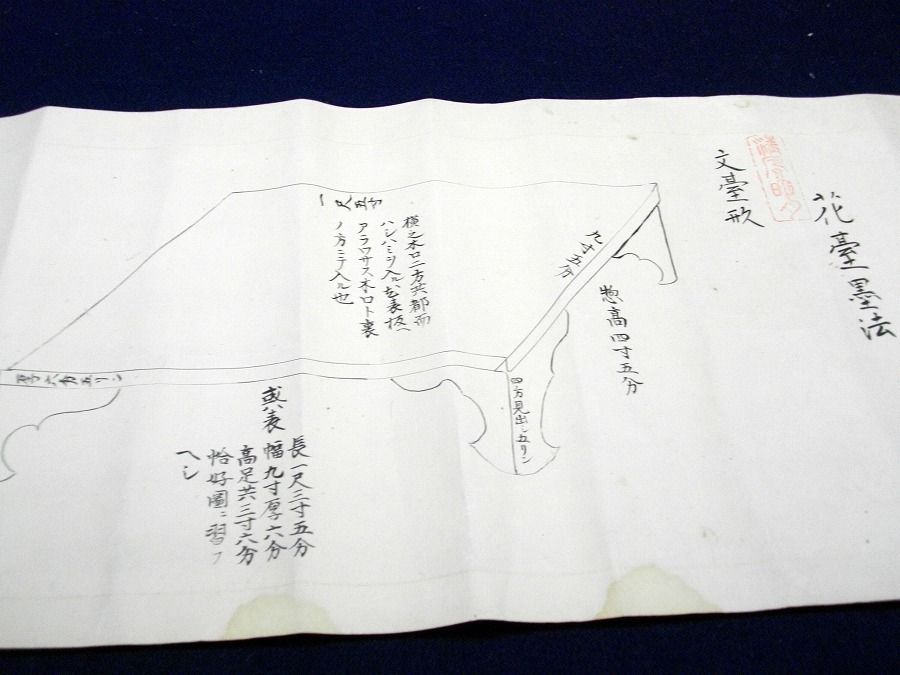 花臺墨法
文臺形
惣高四寸五分
九寸五分
一尺五寸
横之木口二方共都而
アラワサス木口ト裏
ノ方ニテ入ル也
四方見出シ五リン
六分五リン
或ハ表
長一尺三寸五分
幅九寸厚六分
高足共三寸六分
恰好圖ニ習フ
ヘシ